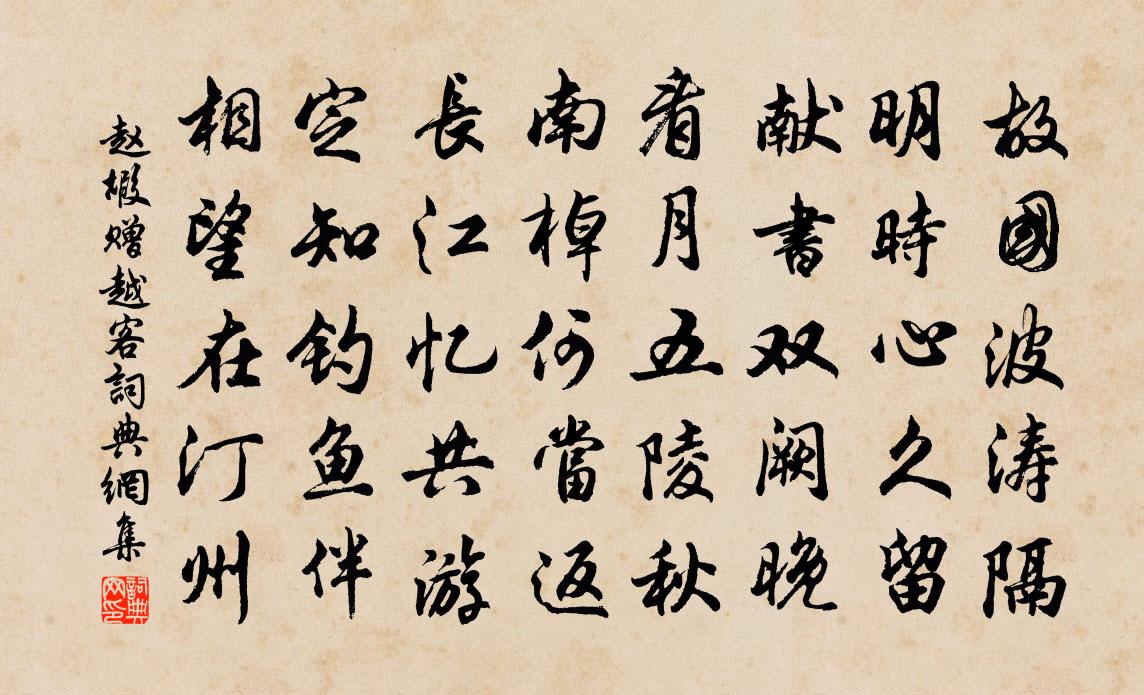 故國波涛隔
明時心久留
献書双阙晚
看月五陵秋
南棹何當返
長江忆共游
定知釣鱼伴
相望在汀州
赵嘏赠越客詞典網集
詞典网印